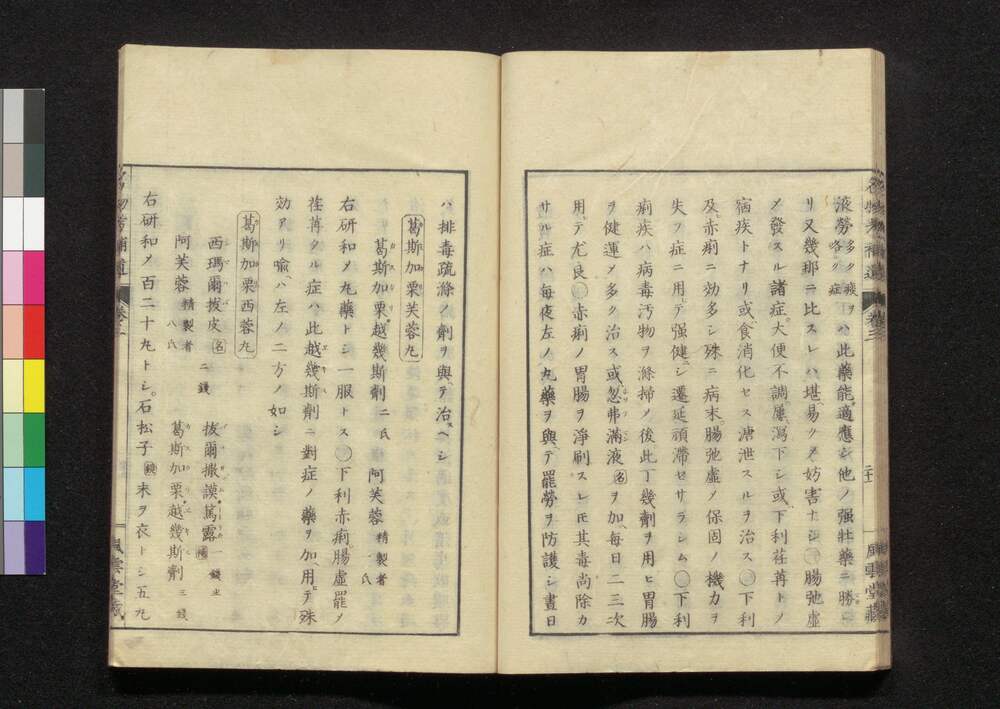 液勞多ク痰ヲ咯クノ症ヲハ此藥能適應シ他ノ强壯藥ニ勝
リ又幾那ニ比スレハ堪易クメ妨害ナシ○腸弛虛
メ發スル諸症大便不調屢瀉下シ或下利荏苒トノ
宿疾トナリ或食消化セス溏泄スルヲ治ス○下利
及赤痢ニ効多シ殊ニ病末腸弛虛メ保固ノ機力ヲ
失フ症ニ用テ强健シ遷延頑滯セサラシム○下利
痢疾ハ病毒汚物ヲ滌掃ノ後此丁幾劑ヲ用ヒ胃腸
ヲ健運メ多ク治ス或忽弗滿液名ヲ加毎日二三次
用テ尤良○赤痢ノ胃腸ヲ淨刷スレ𪜈其毒尚除カ
サル症ハ毎夜左ノ丸藥ヲ與テ罷勞ヲ防護シ晝日
二十一
風雲堂藏
ハ排毒疏滌ノ劑ヲ與テ治スヘシ
葛斯加栗芙蓉丸
葛斯加栗越幾斯劑二氏 阿芙蓉精製者一氏
右研和メ丸藥トシ一服トス○下利赤痢腸虛罷ノ
荏苒タル症ハ此越幾斯劑ニ對症ノ藥ヲ加用テ殊
効アリ喩ハ左ノ二方ノ如シ
葛斯加栗西蓉丸
西瑪爾拔皮名二錢 拔爾撒謨篤露補一錢半
阿芙蓉精製者八氏 葛斯加栗越幾斯劑三錢
右研和メ百二十丸トシ石松子錢末ヲ衣トシ五九